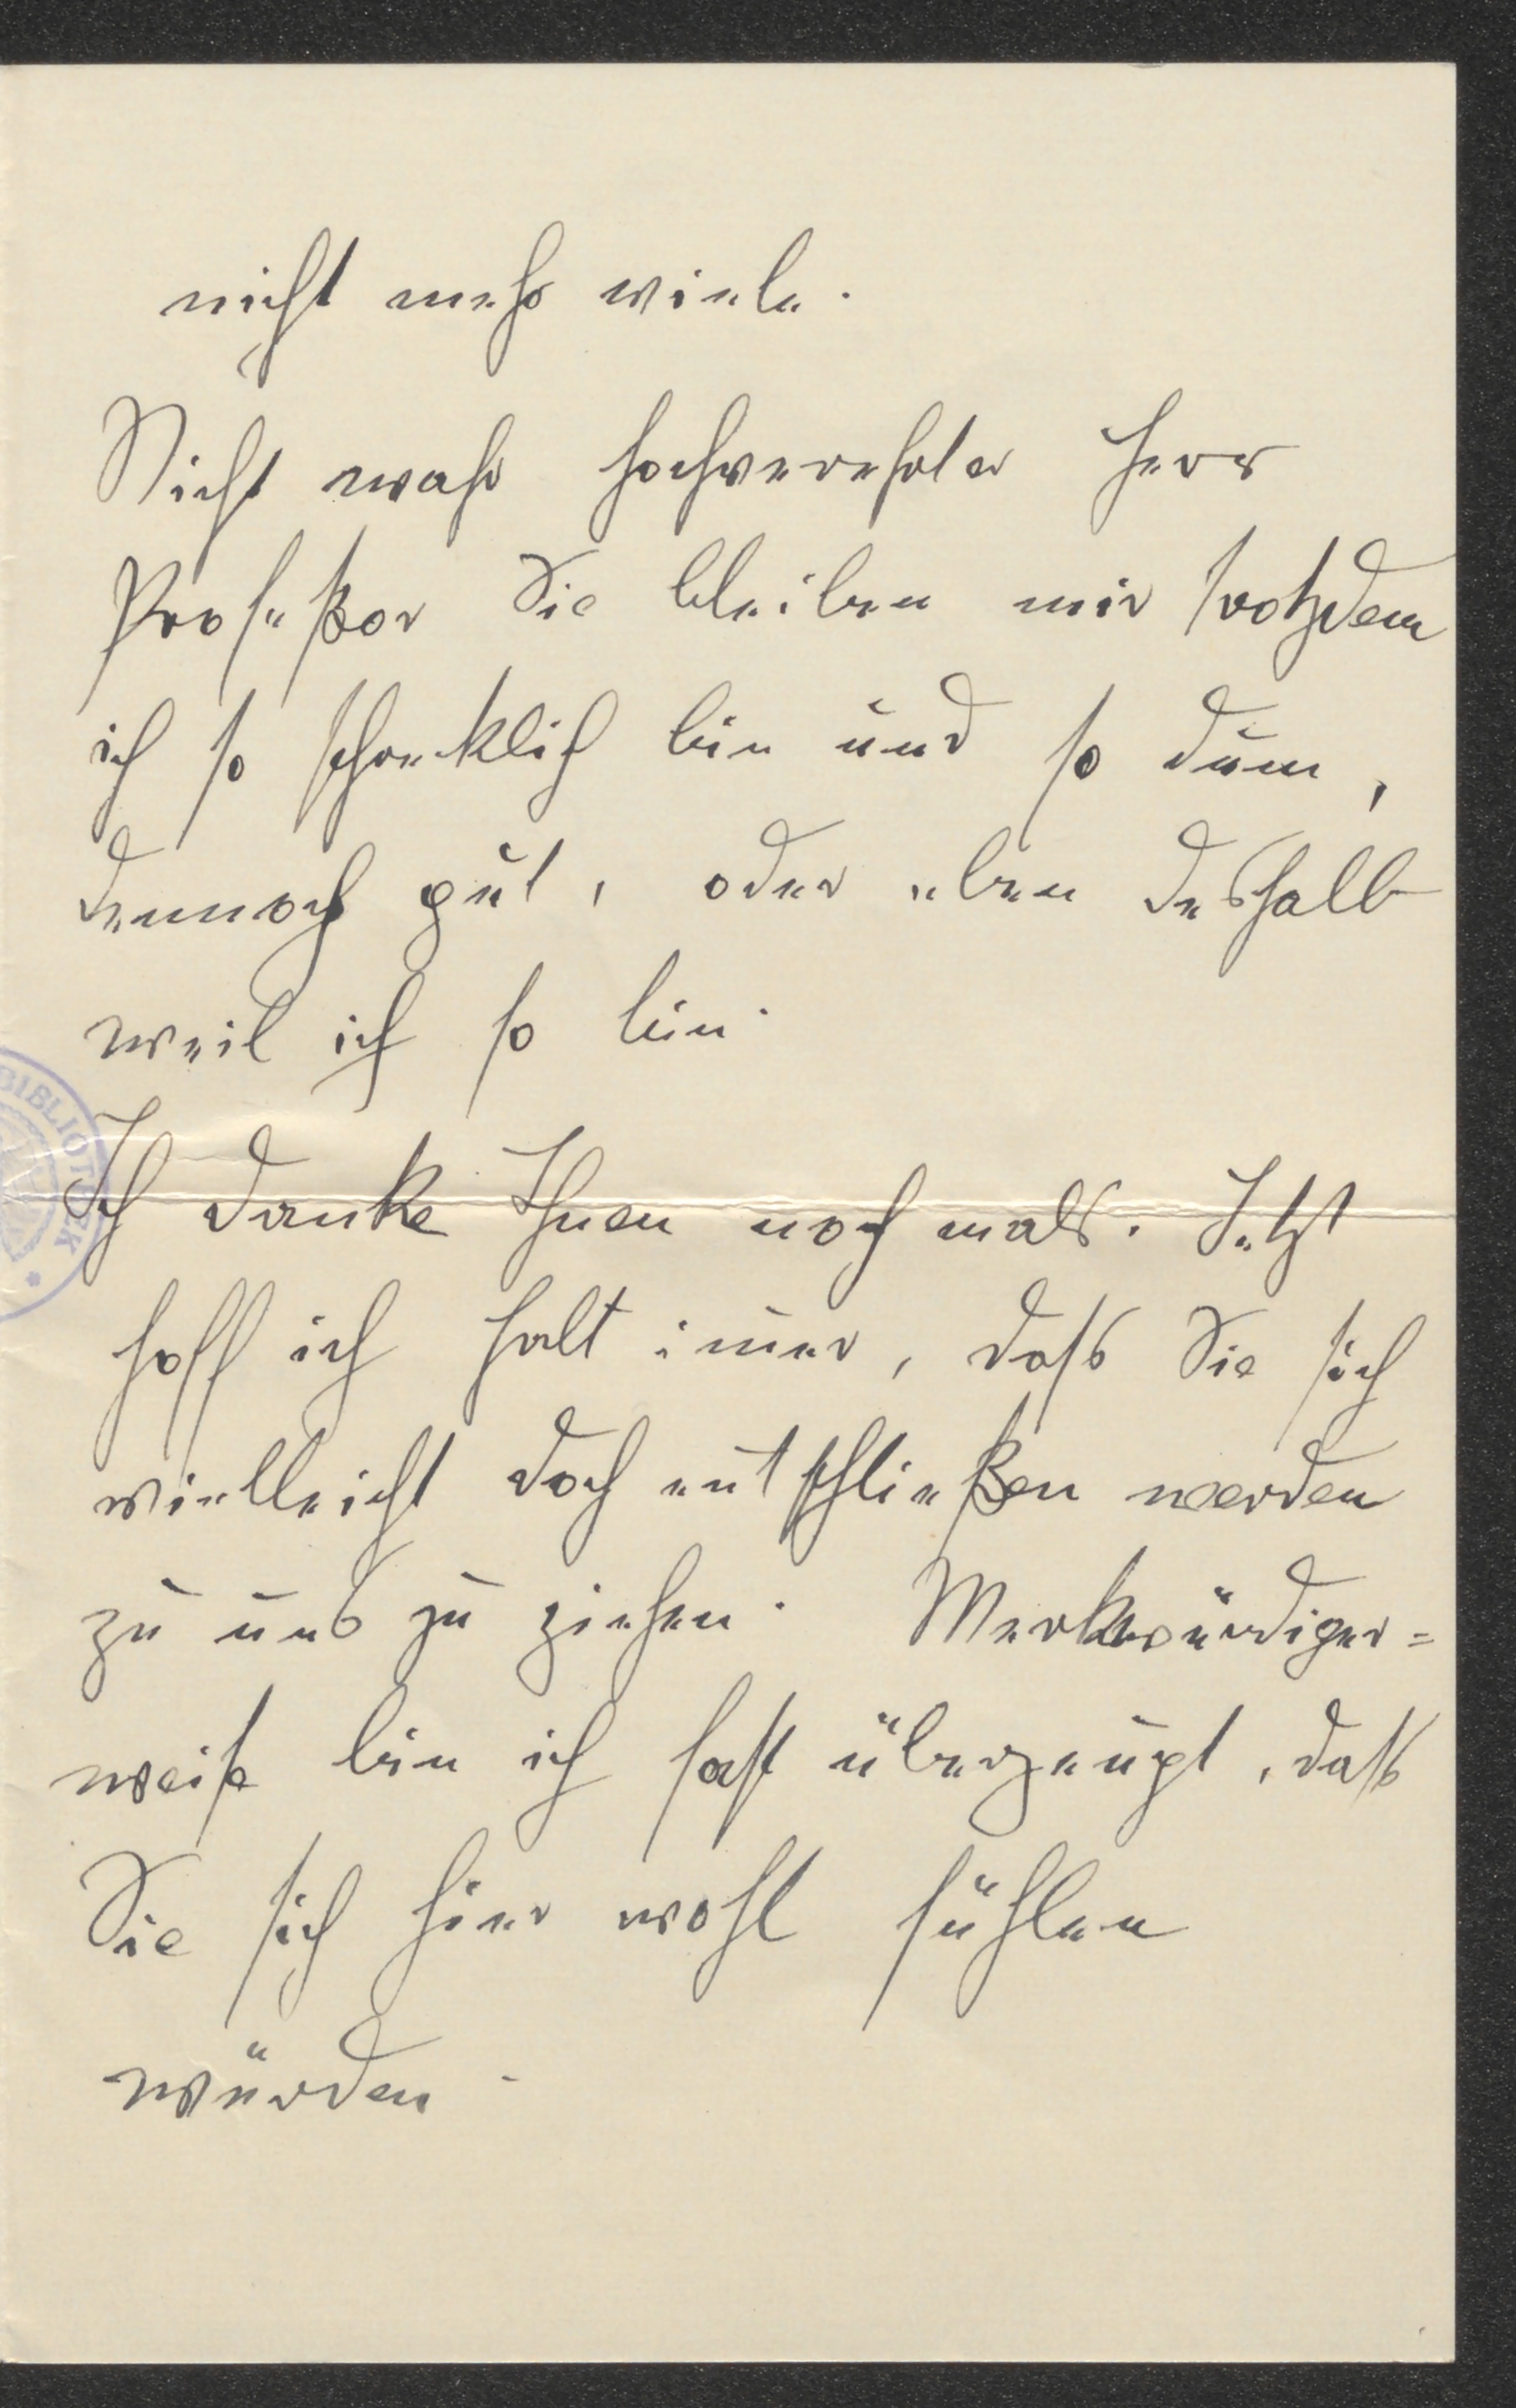 nicht mehr viele.
Nicht wahr hochverehrter Herr
Profeßor Sie bleiben mir trotzdem
ich so schreklich bin und so dum̅,
dennoch gut, oder eben deshalb
weil ich so bin.
Ich danke Ihnen nochmals. Jetzt
hoff ich halt im̅er, daß Sie sich
vielleicht doch entschließen werden
zu uns zu ziehen. Merkwürdiger=
weise bin ich fast überzeugt, daß
Sie sich hier wohl fühlen
würden.
BIBLIOTHEK